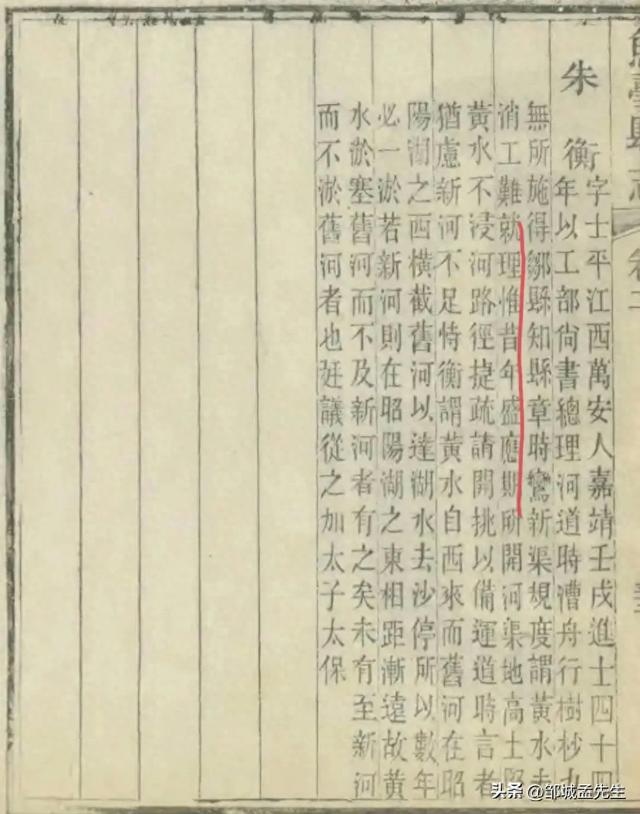 魚臺縣志
朱衡
字士平江西萬安人嘉靖壬戌進士四十四
年以工部尚書總理河道時漕舟行樹杪
無所施得鄒縣知縣章時鸞新渠規度謂黃水未
消工難就理惟昔年盛應期所開河渠地高土堅
黃水不浸河路徑捷疏請開挑以備運道時言者
猶慮新河不足恃衡謂黃水自西來而舊河在昭
陽湖之西橫截舊河以達湖水去沙停所以數年
必一淤若新河則在昭陽湖之東相距漸遠故黃
水淤塞舊河而不及新河者有之矣未有至新河
而不淤舊河者也廷議從之加太子太保
头条 @邹城孟先生